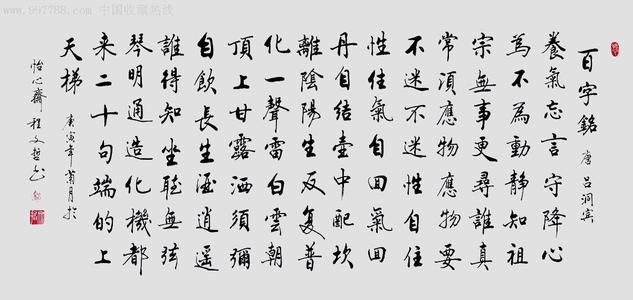 www.997788.com 中国收藏热线
百字銘 唐 呂洞賓
養氣忘言守降心
為不為動靜知祖
宗無事更尋誰真
常須應物應物要
不迷不迷性自住
性住氣自回氣回
丹自結壺中配坎
離陰陽生反復普
化一聲雷白雲朝
頂上甘露洒須彌
自飲長生酒逍遙
誰得知坐聽無弦
琴明通造化機都
来二十句端的上
天梯 庚寅年菊月於
怡心齋 程文哲